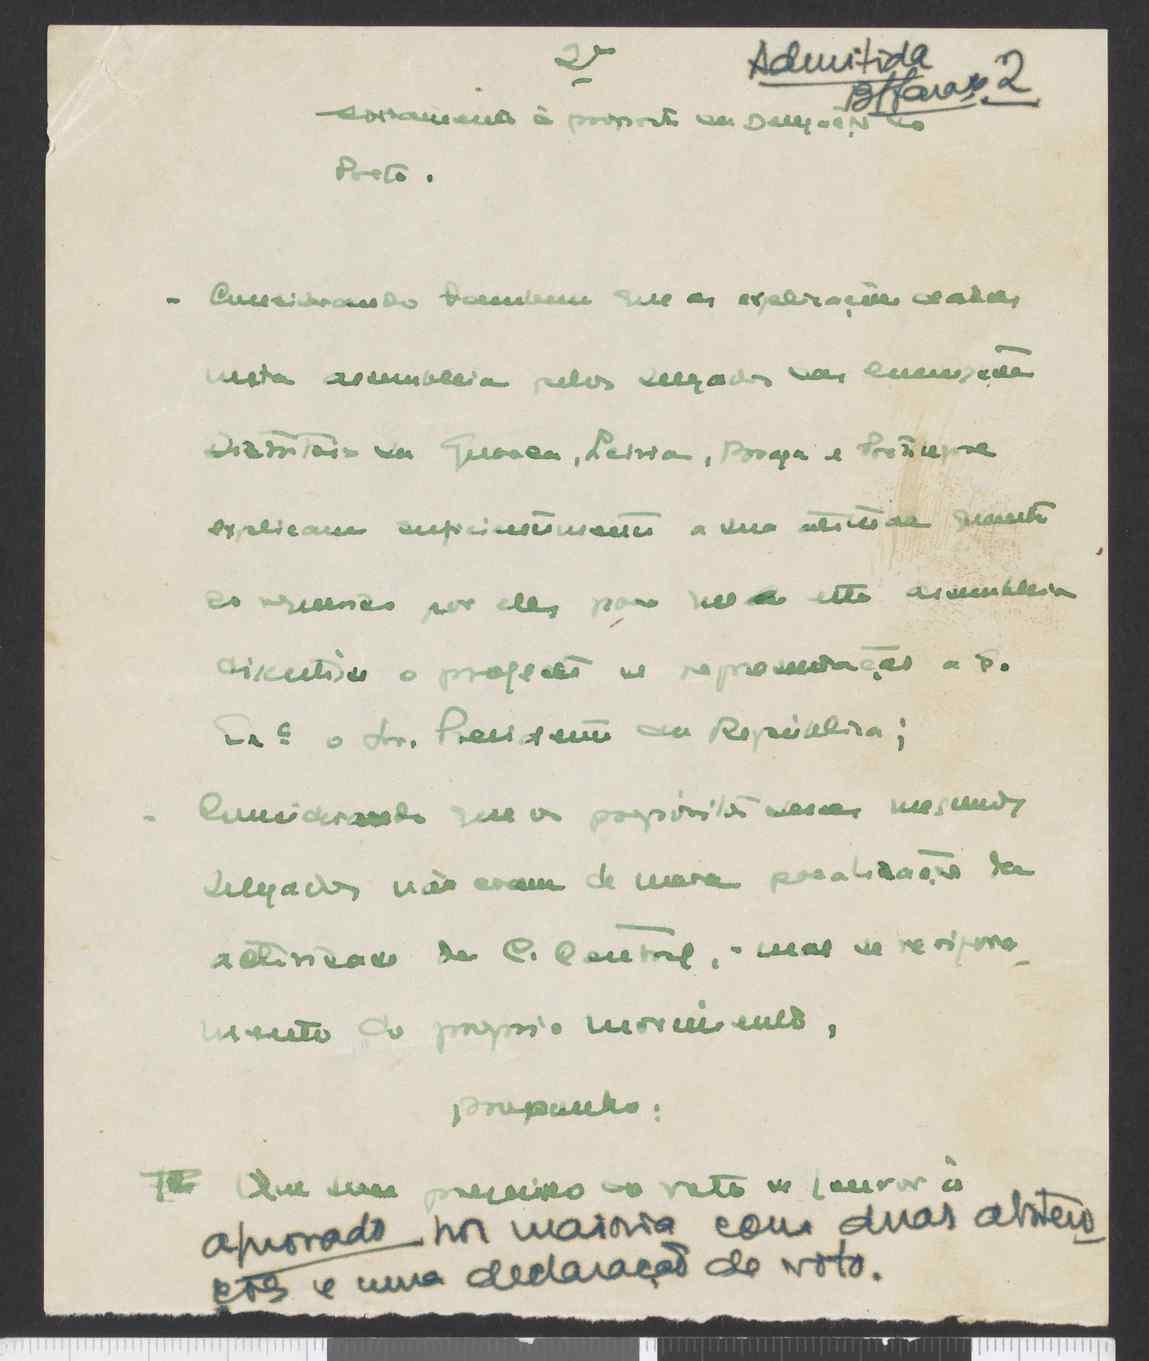 2ª
Admitida
2
Aditamento à proposta da Delegação do
Porto.
- Considerando tambem que as explicações dadas
nesta assembleia pelos delegados das Comissões
Distritais da Guarda, Leiria, Braga e Portalegre
explicam suficientemente a sua atitude quanto
ao por eles para que esta assembleia
discutisse o projecto de representação a S.
Exª o Sr. Presidente da República;
- Considerando que os propósitos desses mesmos
delegados não eram de mera fiscalização da
actividade da C. Central, - mas de revigora-
mento do proprio movimento,
proponho:
Que sem prejuizo do voto de louvor à
aprovado por maioria com duas absten-
ções e uma declaração de voto.